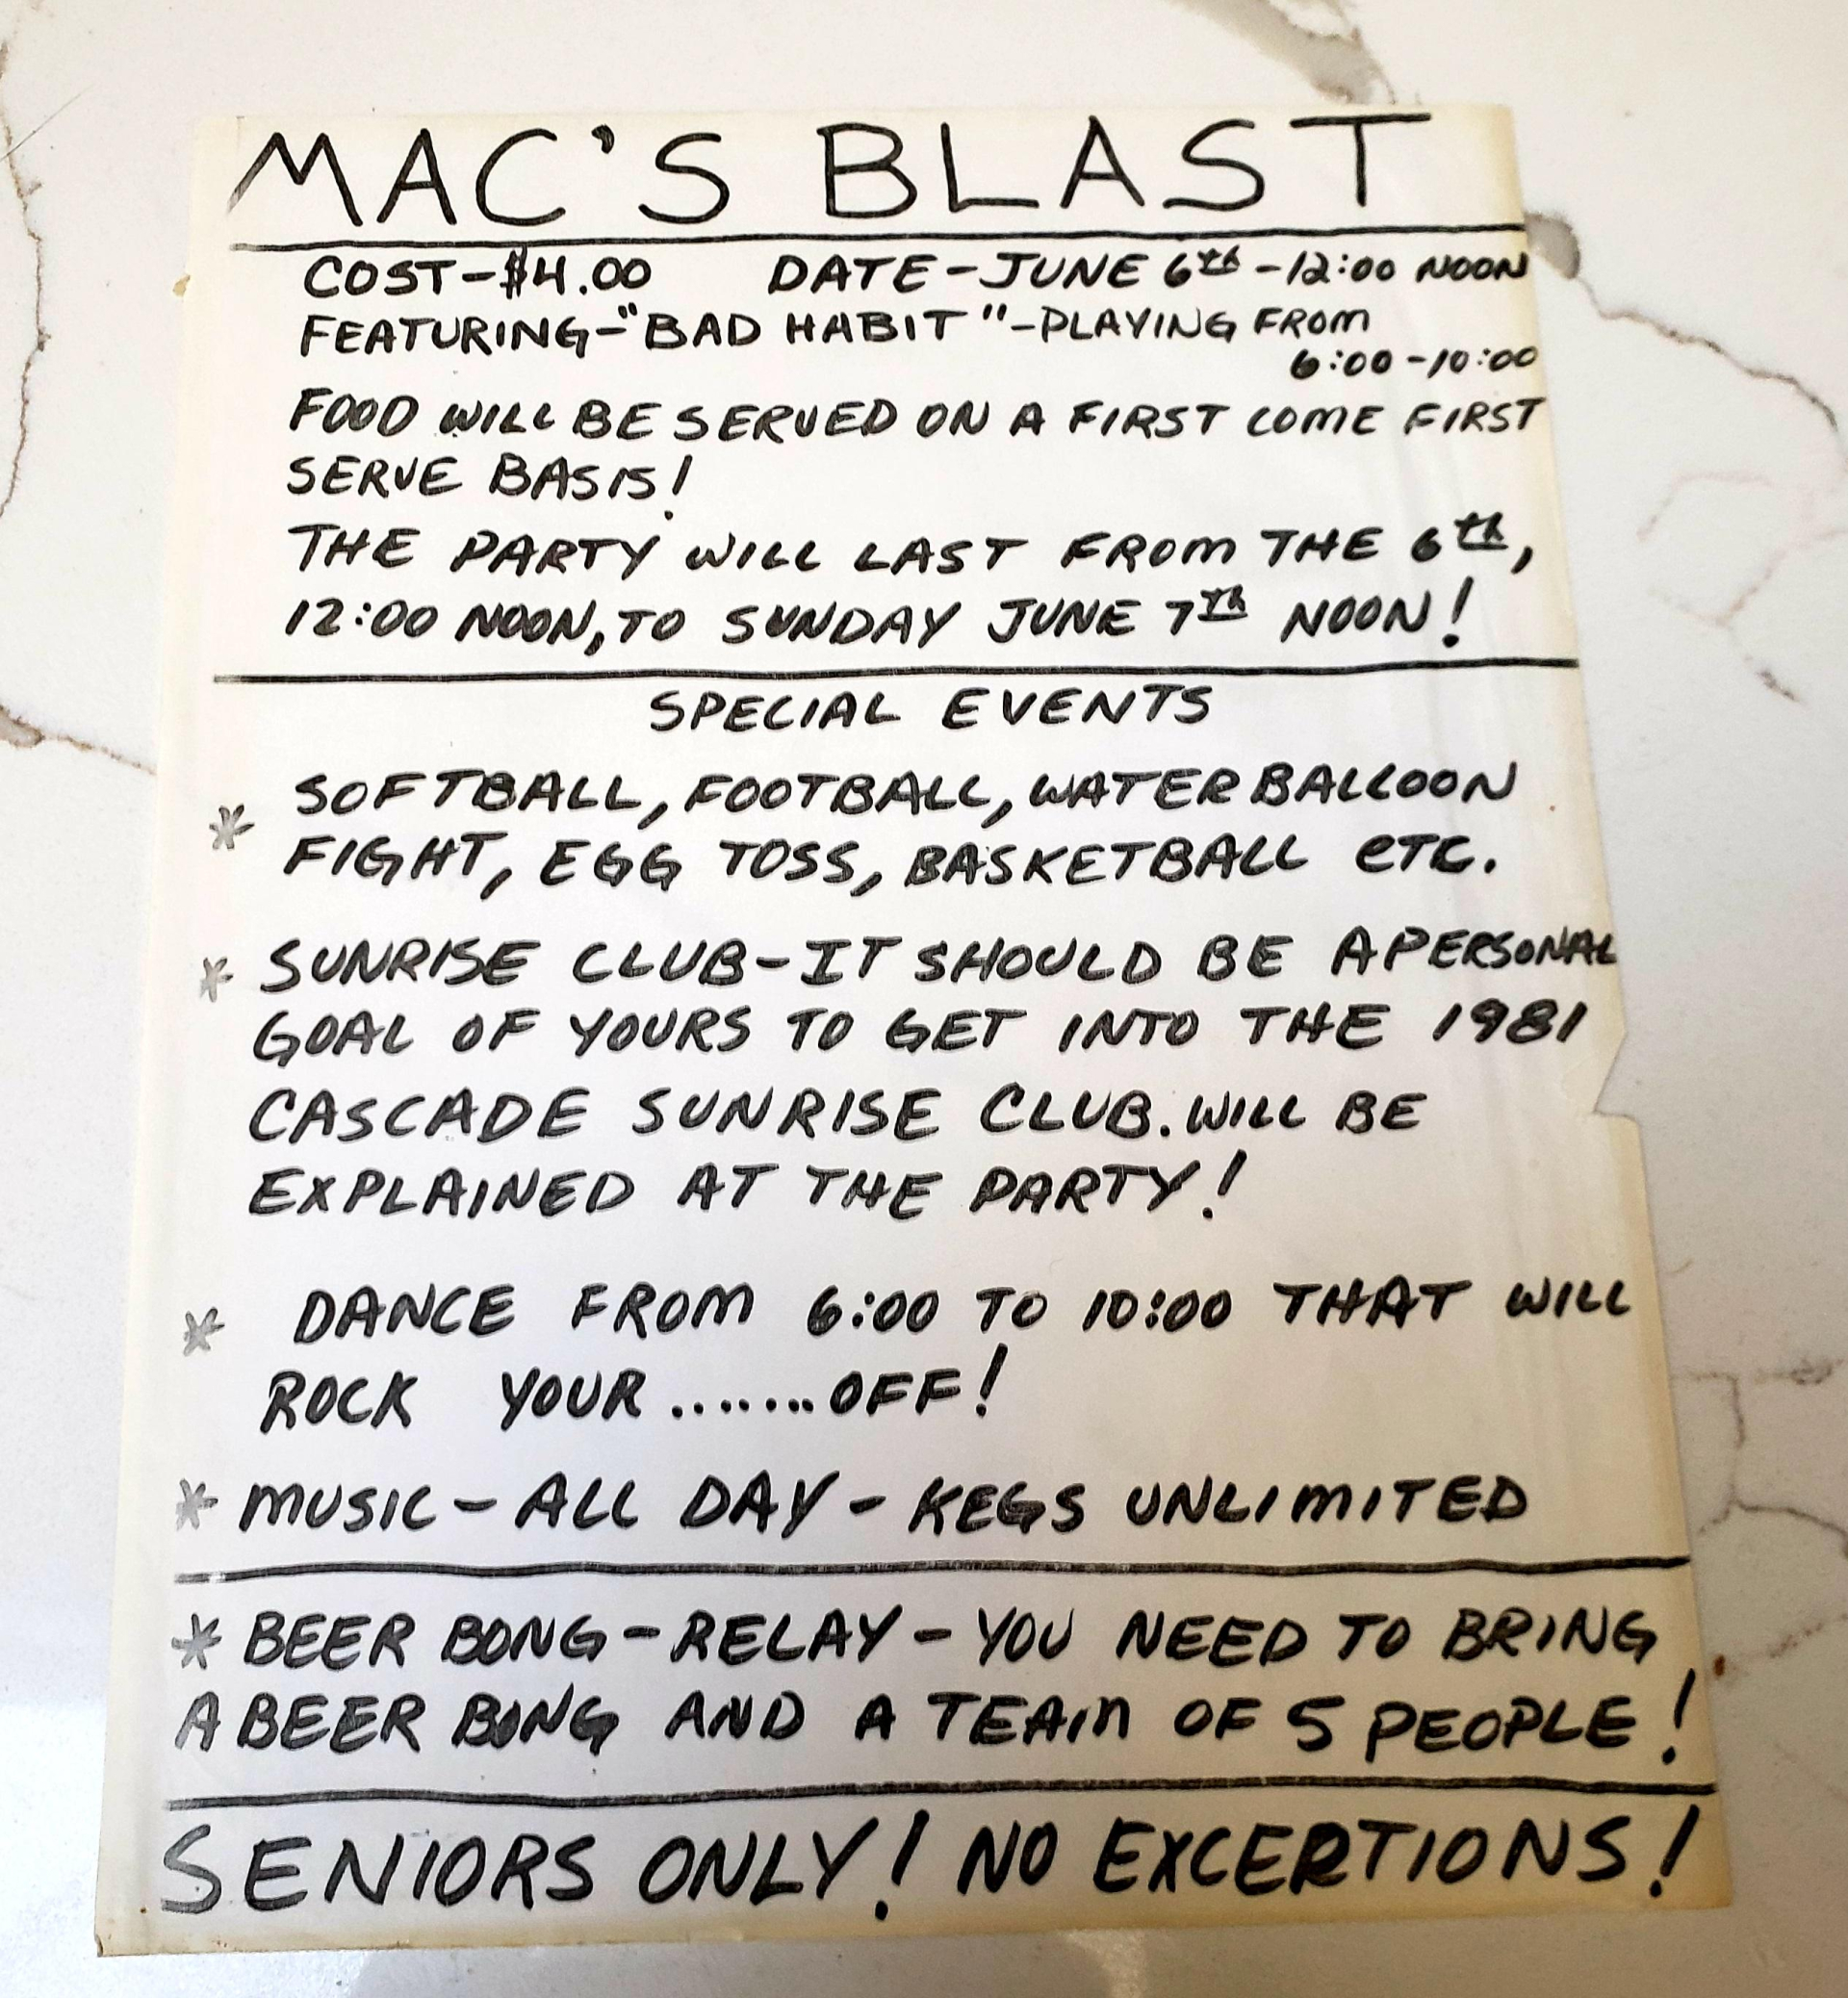 MAC'S BLAST
COST-$4.00 DATE-JUNE 6th-12:00 NOON
FEATURING-"BAD HABIT"-PLAYING FROM
6:00-10:00
FOOD WILL BE SERVED ON A FIRST COME FIRST
SERVE BASIS!
THE PARTY WILL LAST FROM THE 6th,
12:00 NOON, TO SUNDAY JUNE 7th NOON!
SPECIAL EVENTS
* SOFTBALL, FOOTBALL, WATER BALLOON
FIGHT, EGG TOSS, BASKETBALL ETC.
* SUNRISE CLUB-IT SHOULD BE A PERSONAL
GOAL OF YOURS TO GET INTO THE 1981
CASCADE SUNRISE CLUB. WILL BE
EXPLAINED AT THE PARTY!
* DANCE FROM 6:00 TO 10:00 THAT WILL
ROCK YOUR .......OFF!
* MUSIC-ALL DAY-KEGS UNLIMITED
* BEER BONG-RELAY-YOU NEED TO BRING
A BEER BONG AND A TEAM OF 5 PEOPLE!
SENIORS ONLY! NO EXCERTIONS!